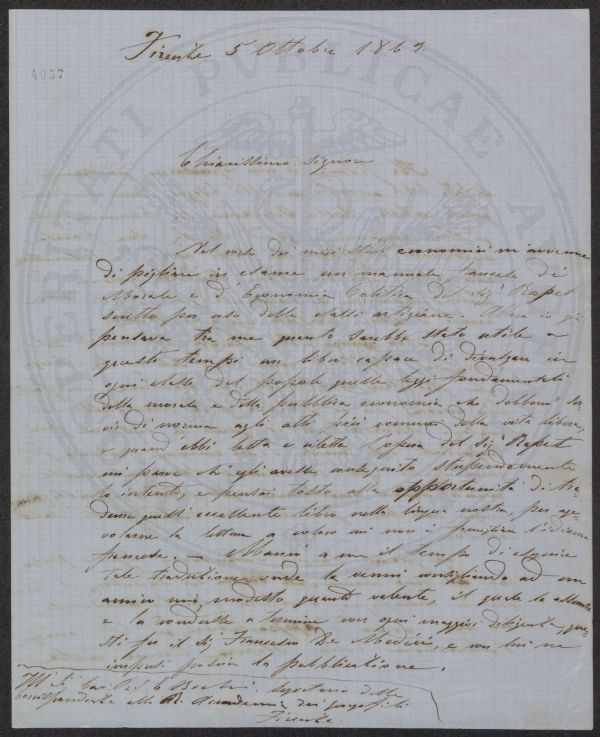 Firenze 5 Ottobre 1869.
4057
Chiarissimo Signore
Nel corso dei miei studi economici m'avvenne
di pigliare in esame un manuale francese di
Morale e d'Economia Politica del Sigr Rapet
scritto per uso delle classi artigiane. Allora io già
pensava tra me quanto sarebbe stato utile a
questi tempi un libro capace di divulgare in
ogni classe del popolo quelle leggi fondamentali
della morale e della pubblica economia che debbono ser-
vir di norma agli atti più comuni della vita libera,
e quand'ebbi letta e riletta l'opera del Sigr Rapet
mi parve ch'egli avesse conseguito stupendamente
lo intento, e pensai tosto alla opportunità di tra-
durre quest'eccellente libro nella lingua nostra, per age-
volarne la lettura a coloro cui non è famigliare l'idioma
francese. — Mancò a me il tempo di eseguire
tale traduzione, onde la venni consigliando ad un
amico mio, modesto quanto valente, il quale la assunse
e la condusse a termine con ogni maggior diligenza, que-
sti fu il Sig Francesco De Medici, e con lui ne
impresi poscia la pubblicazione.
Ill Sig Cav. Segretario delle
Corrispondenze alla R. Accademia dei Georgofili
Firenze.
PUBLICAE